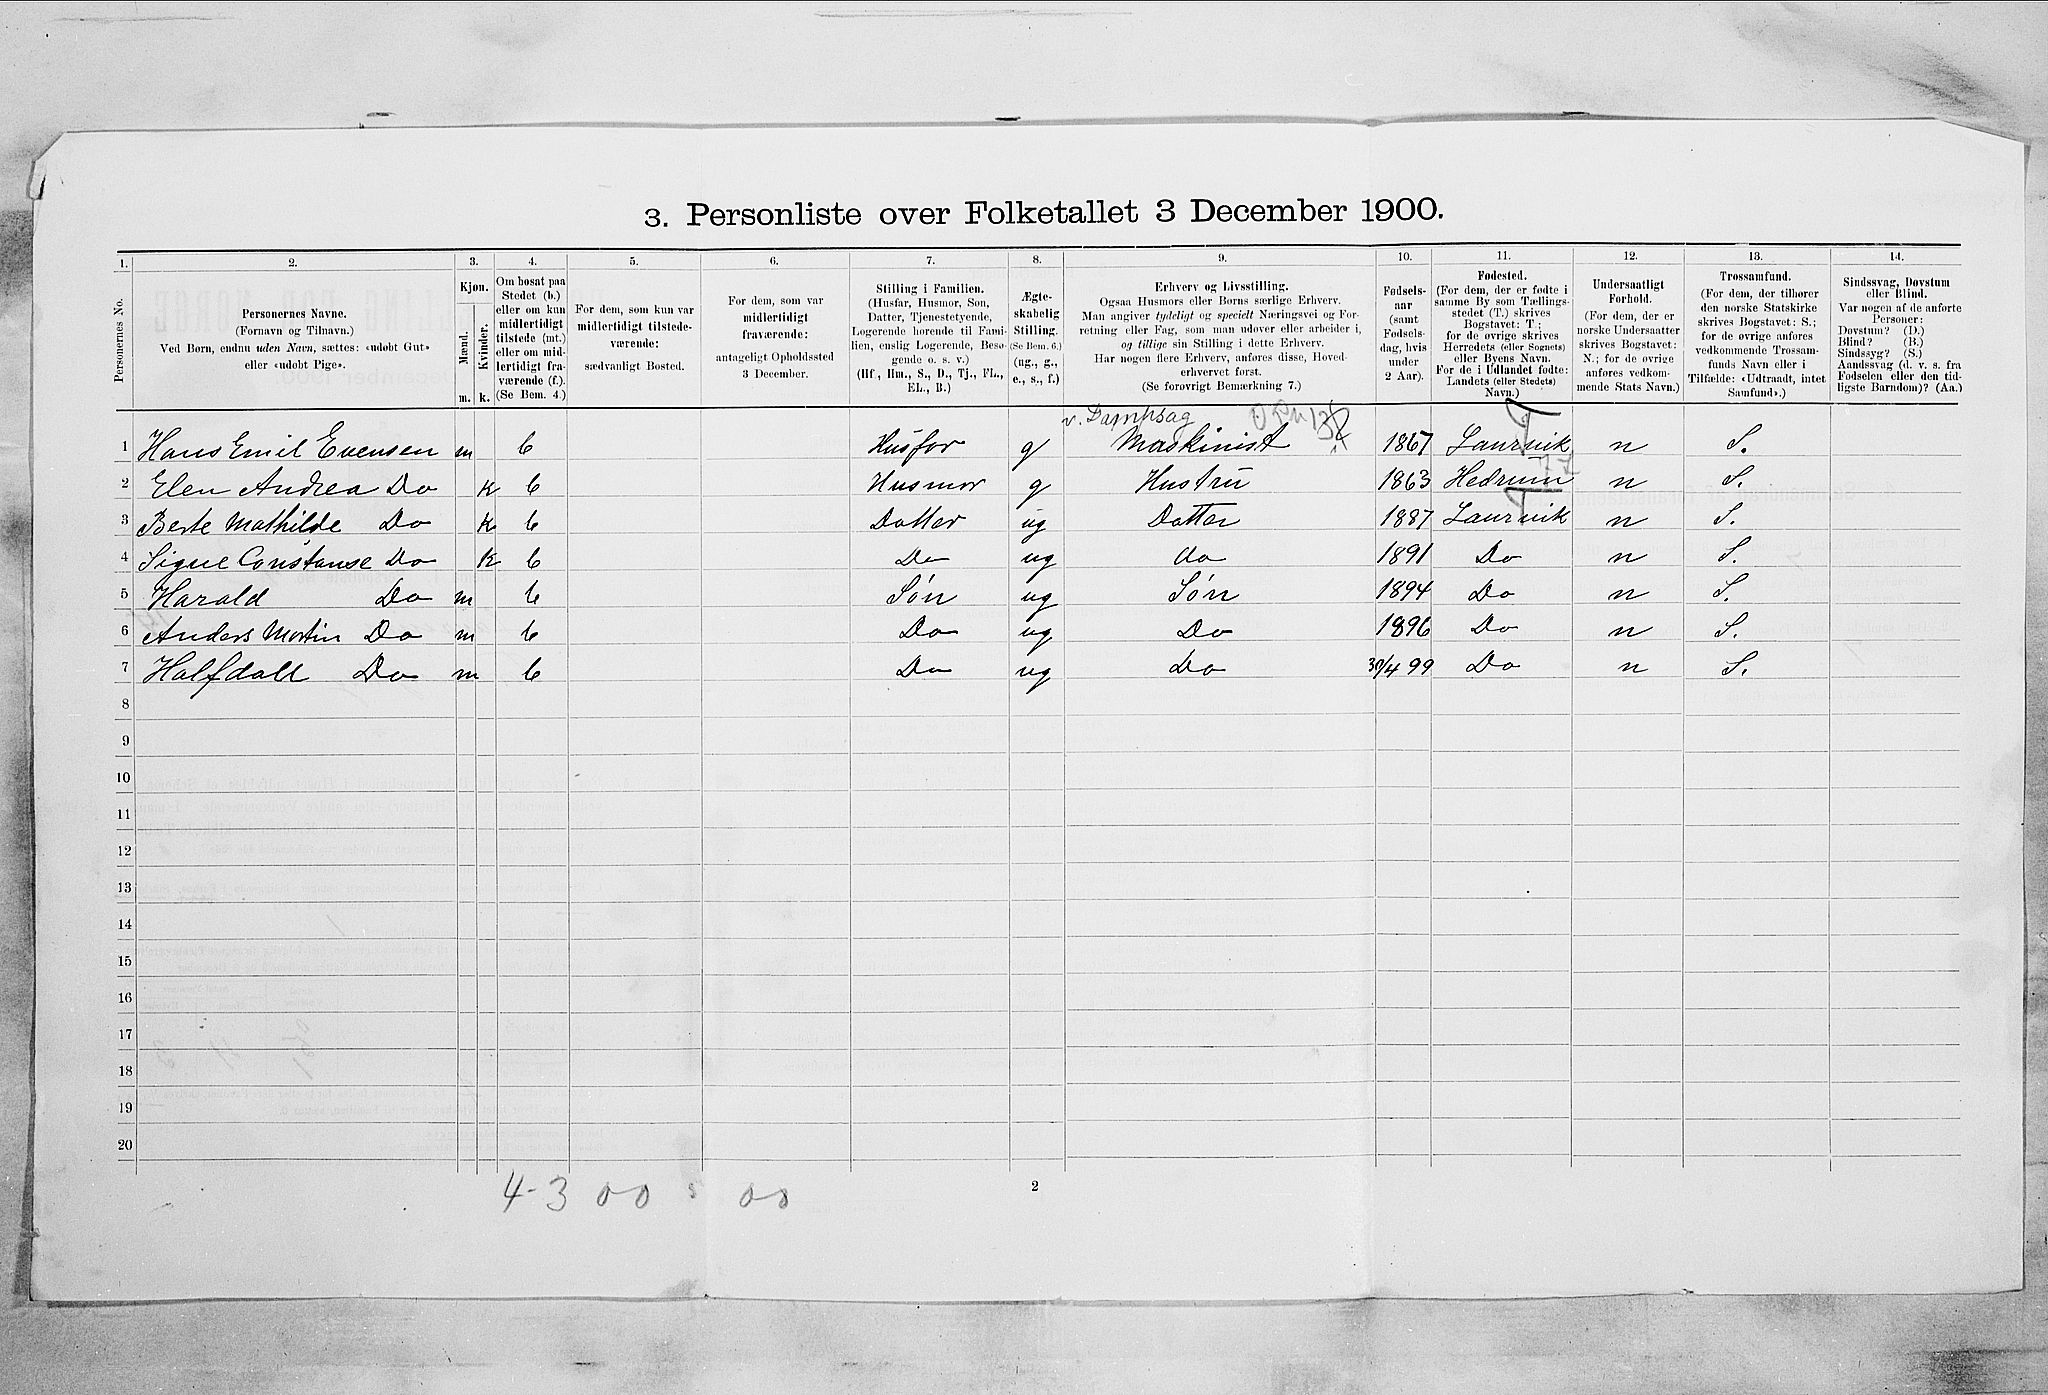 3. Personliste over Folketallet 3 December 1900.
1. 2. 3. 4. 5. 6. 7. 8. 9. 10. 11. 12. 13. 14.
Personernes No.
Personernes Navne.
(Fornavn og Tilnavn.)
Ved Børn, endnu uden Navn, sættes: «udøbt Gut»
eller «udøbt Pige».
Kjøn.
Mænd.
Kvinder.
m. k.
Om bosat paa
Stedet (b.)
eller om kun
midlertidigt
tilstede (mt.)
eller om mid-
lertidigt fra-
værende (f.).
(Se Bem. 4.)
For dem, som kun var
midlertidigt tilstede-
værende:
sædvanligt Bosted.
For dem, som var
midlertidigt
fraværende:
antageligt Opholdssted
3 December.
Stilling i Familien.
(Husfar, Husmor, Søn,
Datter, Tjenestetyende,
Logerende hørende til Fami-
lien, enslig Logerende, Besø-
gende o. s. v.)
(Hf., Hm., S., D., Tj., FL.,
EL., B.)
Ægte-
skabelig
Stilling.
(Se Bem. 6.)
(ug., g.,
e., s., f.)
Erhverv og Livsstilling.
Ogsaa Husmors eller Børns særlige Erhverv.
Man angiver tydeligt og specielt Næringsvei og For-
retning eller Fag, som man udøver eller arbeider i,
og tillige sin Stilling i dette Erhverv.
Har nogen flere Erhverv, anføres disse, Hoved-
erhvervet først.
(Se forøvrigt Bemærkning 7.)
Fødsels-
aar
(samt
Fødsels-
dag, hvis
under
2 Aar).
Fødested.
(For dem, der er fødte i
samme By som Tællings-
stedet (T.) skrives
Bogstavet: T;
for de øvrige skrives
Herredets (eller Sognets)
eller Byens Navn.
For de i Udlandet fødte:
Landets (eller Stedets)
Navn.)
Undersaatligt
Forhold.
(For dem, der er
norske Undersaatter
skrives Bogstavet:
N.; for de øvrige
anføres vedkom-
mende Stats Navn.)
Trossamfund.
(For dem, der tilhører
den norske Statskirke
skrives Bogstavet: S.;
for de øvrige anføres
vedkommende Trossam-
funds Navn eller i
Tilfælde: «Udtraadt, intet
Samfund».)
Sindssvag, Døvstum
eller Blind.
Var nogen af de anførte
Personer:
Døvstum? (D.)
Blind? (B.)
Sindssyg? (S.)
Aandssvag (d. v. s. fra
Fødselen eller den tid-
ligste Barndom)? (Aa.)
v. Dampsag
T
1 Hans Emil Evensen m b Husfar g Maskinist 1867 Laurvik n S.
77
2 Elen Andrea Do k b Husmor g Hustru 1863 Hedrum n S.
T
3 Berte Mathilde Do k b Datter ug Datter 1887 Laurvik n S.
4 Signe Constanse Do k b Do ug do 1891 Do n S.
5 Harald Do m b Søn ug Søn 1894 Do n S.
6 Anders Martin Do m b Do ug Do 1896 Do n S.
7 Halfdall Do m b Do ug Do 30/4 99 Do n S.
8
9
10
11
12
13
14
15
16
17
18
19
20
4-3 00 00
2